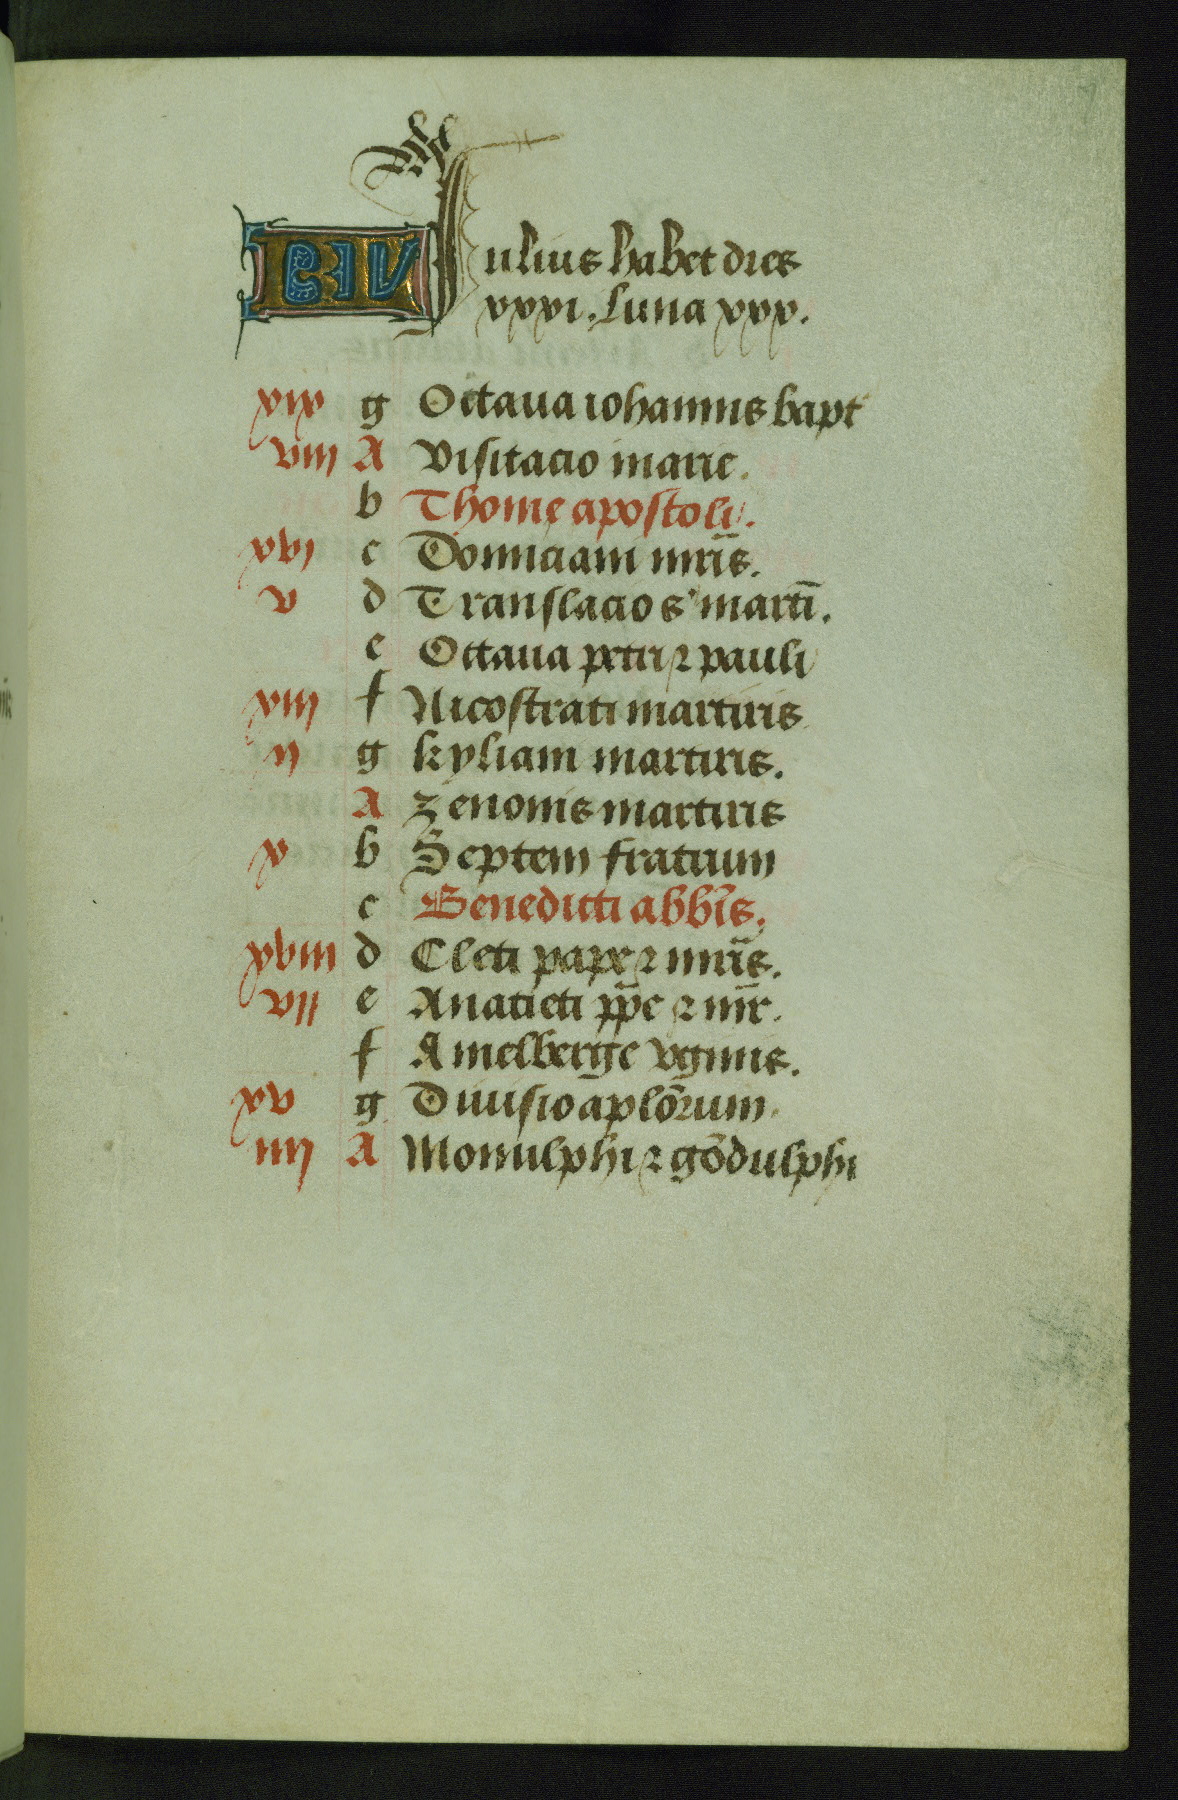 Julius habet dies
xxxi. Luna xxx.
xix g Octaua iohannis bapt
viii A Visitacio marie.
b Thome apostoli.
xvi c Domiciani mr̄is.
v d Translacio s' martī.
e Octaua petri ⁊ pauli
xiii f Nicostrati martiris
ii g kyliani martiris.
A Zenonis martiris
x b Septem fratrum
c Benedicti abb̄is.
xviii d Cleti pape ⁊ mr̄is.
vii e Anacleti pp̄e ⁊ mr̄.
f Amelberge v̄ginis.
xv g Diuisio apl̄orum.
iiii A Monulphi ⁊ gōdulphi